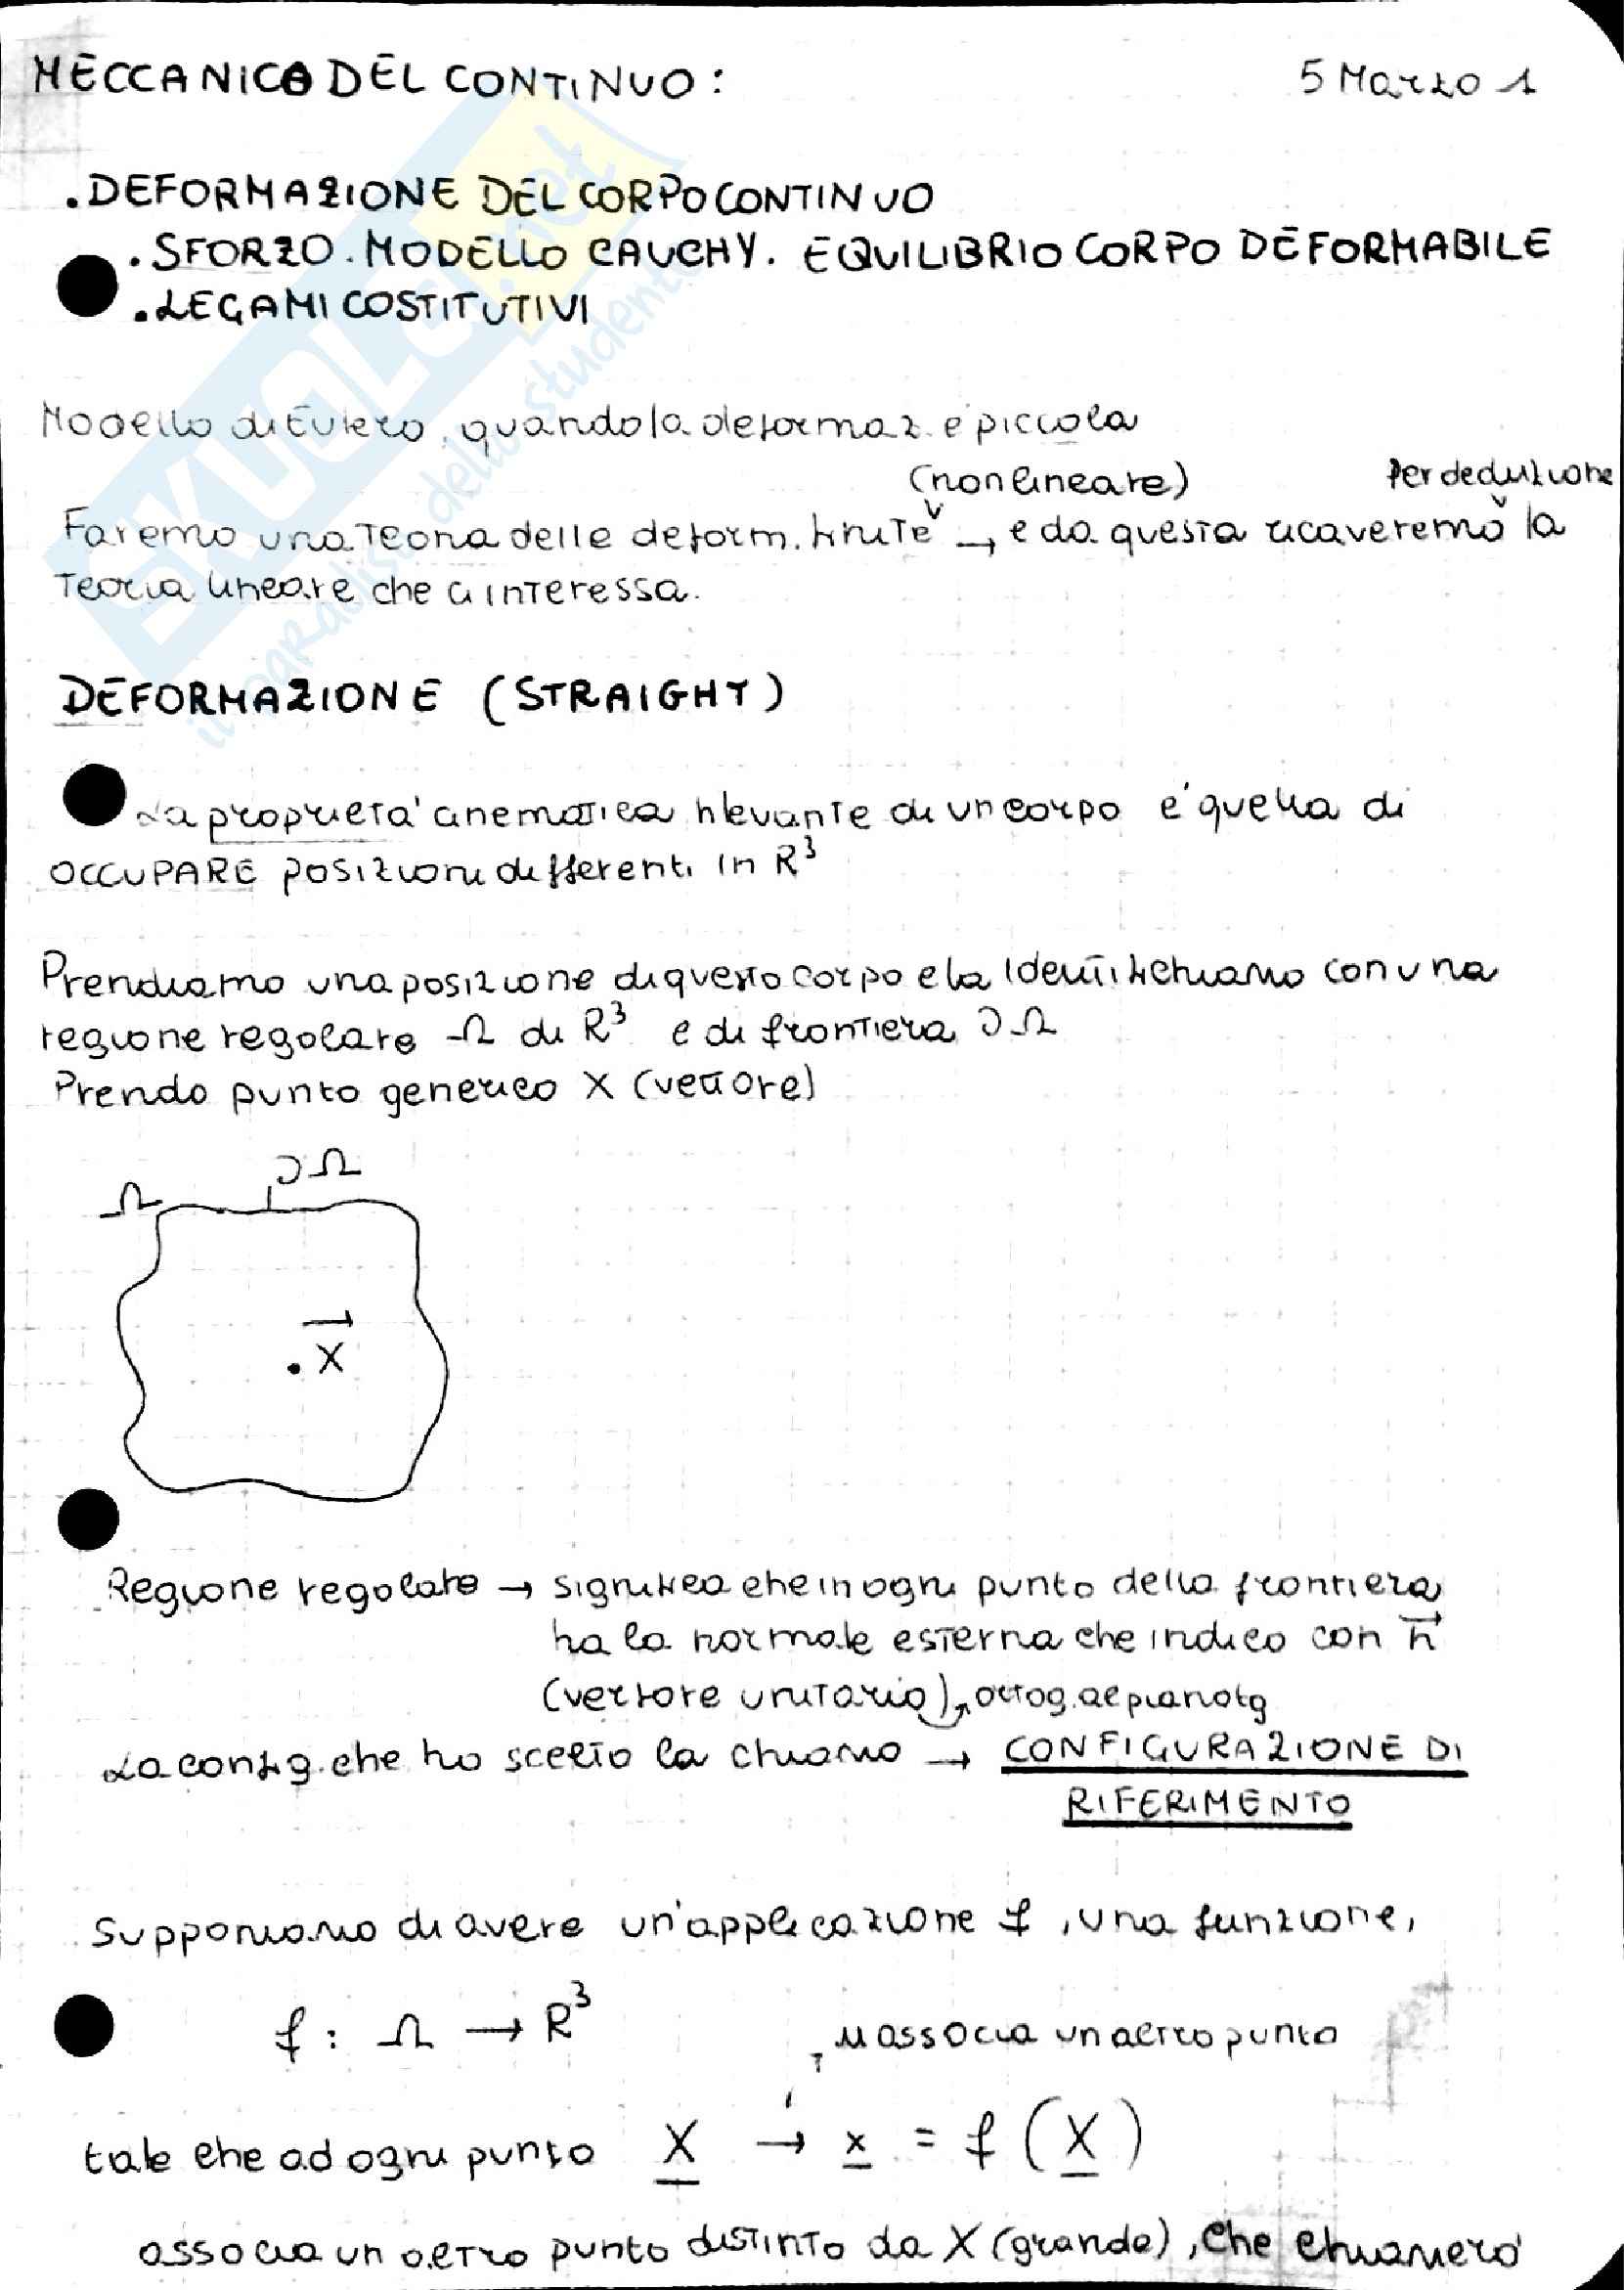 MECCANICA DEL CONTINUO: 5 Marzo 1
. DEFORMAZIONE DEL CORPO CONTINUO
. SFORZO. MODELLO CAUCHY. EQUILIBRIO CORPO DEFORMABILE
. LEGAMI COSTITUTIVI
Modello di Eulero, quando la deformaz. è piccola
(non lineare) Per deduzione
Faremo una teoria delle deform. finite → e da questa ricaveremo la
teoria lineare che ci interessa.
DEFORMAZIONE (STRAIGHT)
La proprietà cinematica rilevante di un corpo è quella di
OCCUPARE posizioni differenti in R³
Prendiamo una posizione di questo corpo e la identifichiamo con una
regione regolare Ω di R³ e di frontiera ∂Ω
Prendo punto generico X (vettore)
Ω ∂Ω
. X⃗
Regione regolare → significa che in ogni punto della frontiera
ha la normale esterna che indico con n⃗
(versore unitario), ortog. al piano tg
La config. che ho scelto la chiamo → CONFIGURAZIONE DI
RIFERIMENTO
Supponiamo di avere un'applicazione f, una funzione,
f : Ω → R³ , li associa un altro punto
tale che ad ogni punto X → x = f (X)
associa un altro punto distinto da X (grande), che chiamerò
SKUOLA.net
il paradiso dello studente